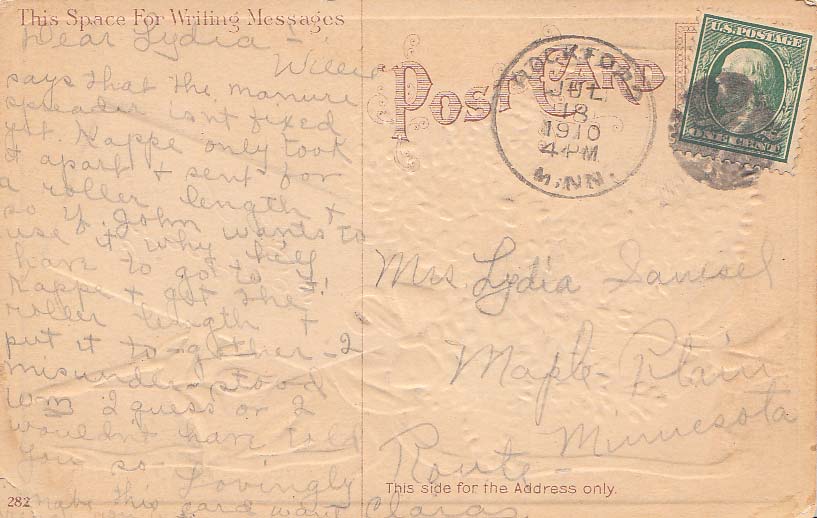 This Space For Writing Messages
Dear Lydia -
Willie
says that the manure
spreader isn't fixed
yet. Kappe only took
it apart & sent for
a roller length &
so if John wants to
use it why he'll
have to go to
Kappe & get the
roller length &
put it to-gether - I
misunder-stood
Wm I guess or I
wouldn't have told
you so. Lovingly
Clara
this card want
282
POST CARD
ROCKFORD
JUL
18
1910
4-PM
MINN.
U.S. POSTAGE
ONE CENT
Mrs. Lydia
Maple-Plain
Minnesota
Route-
This side for the Address only.